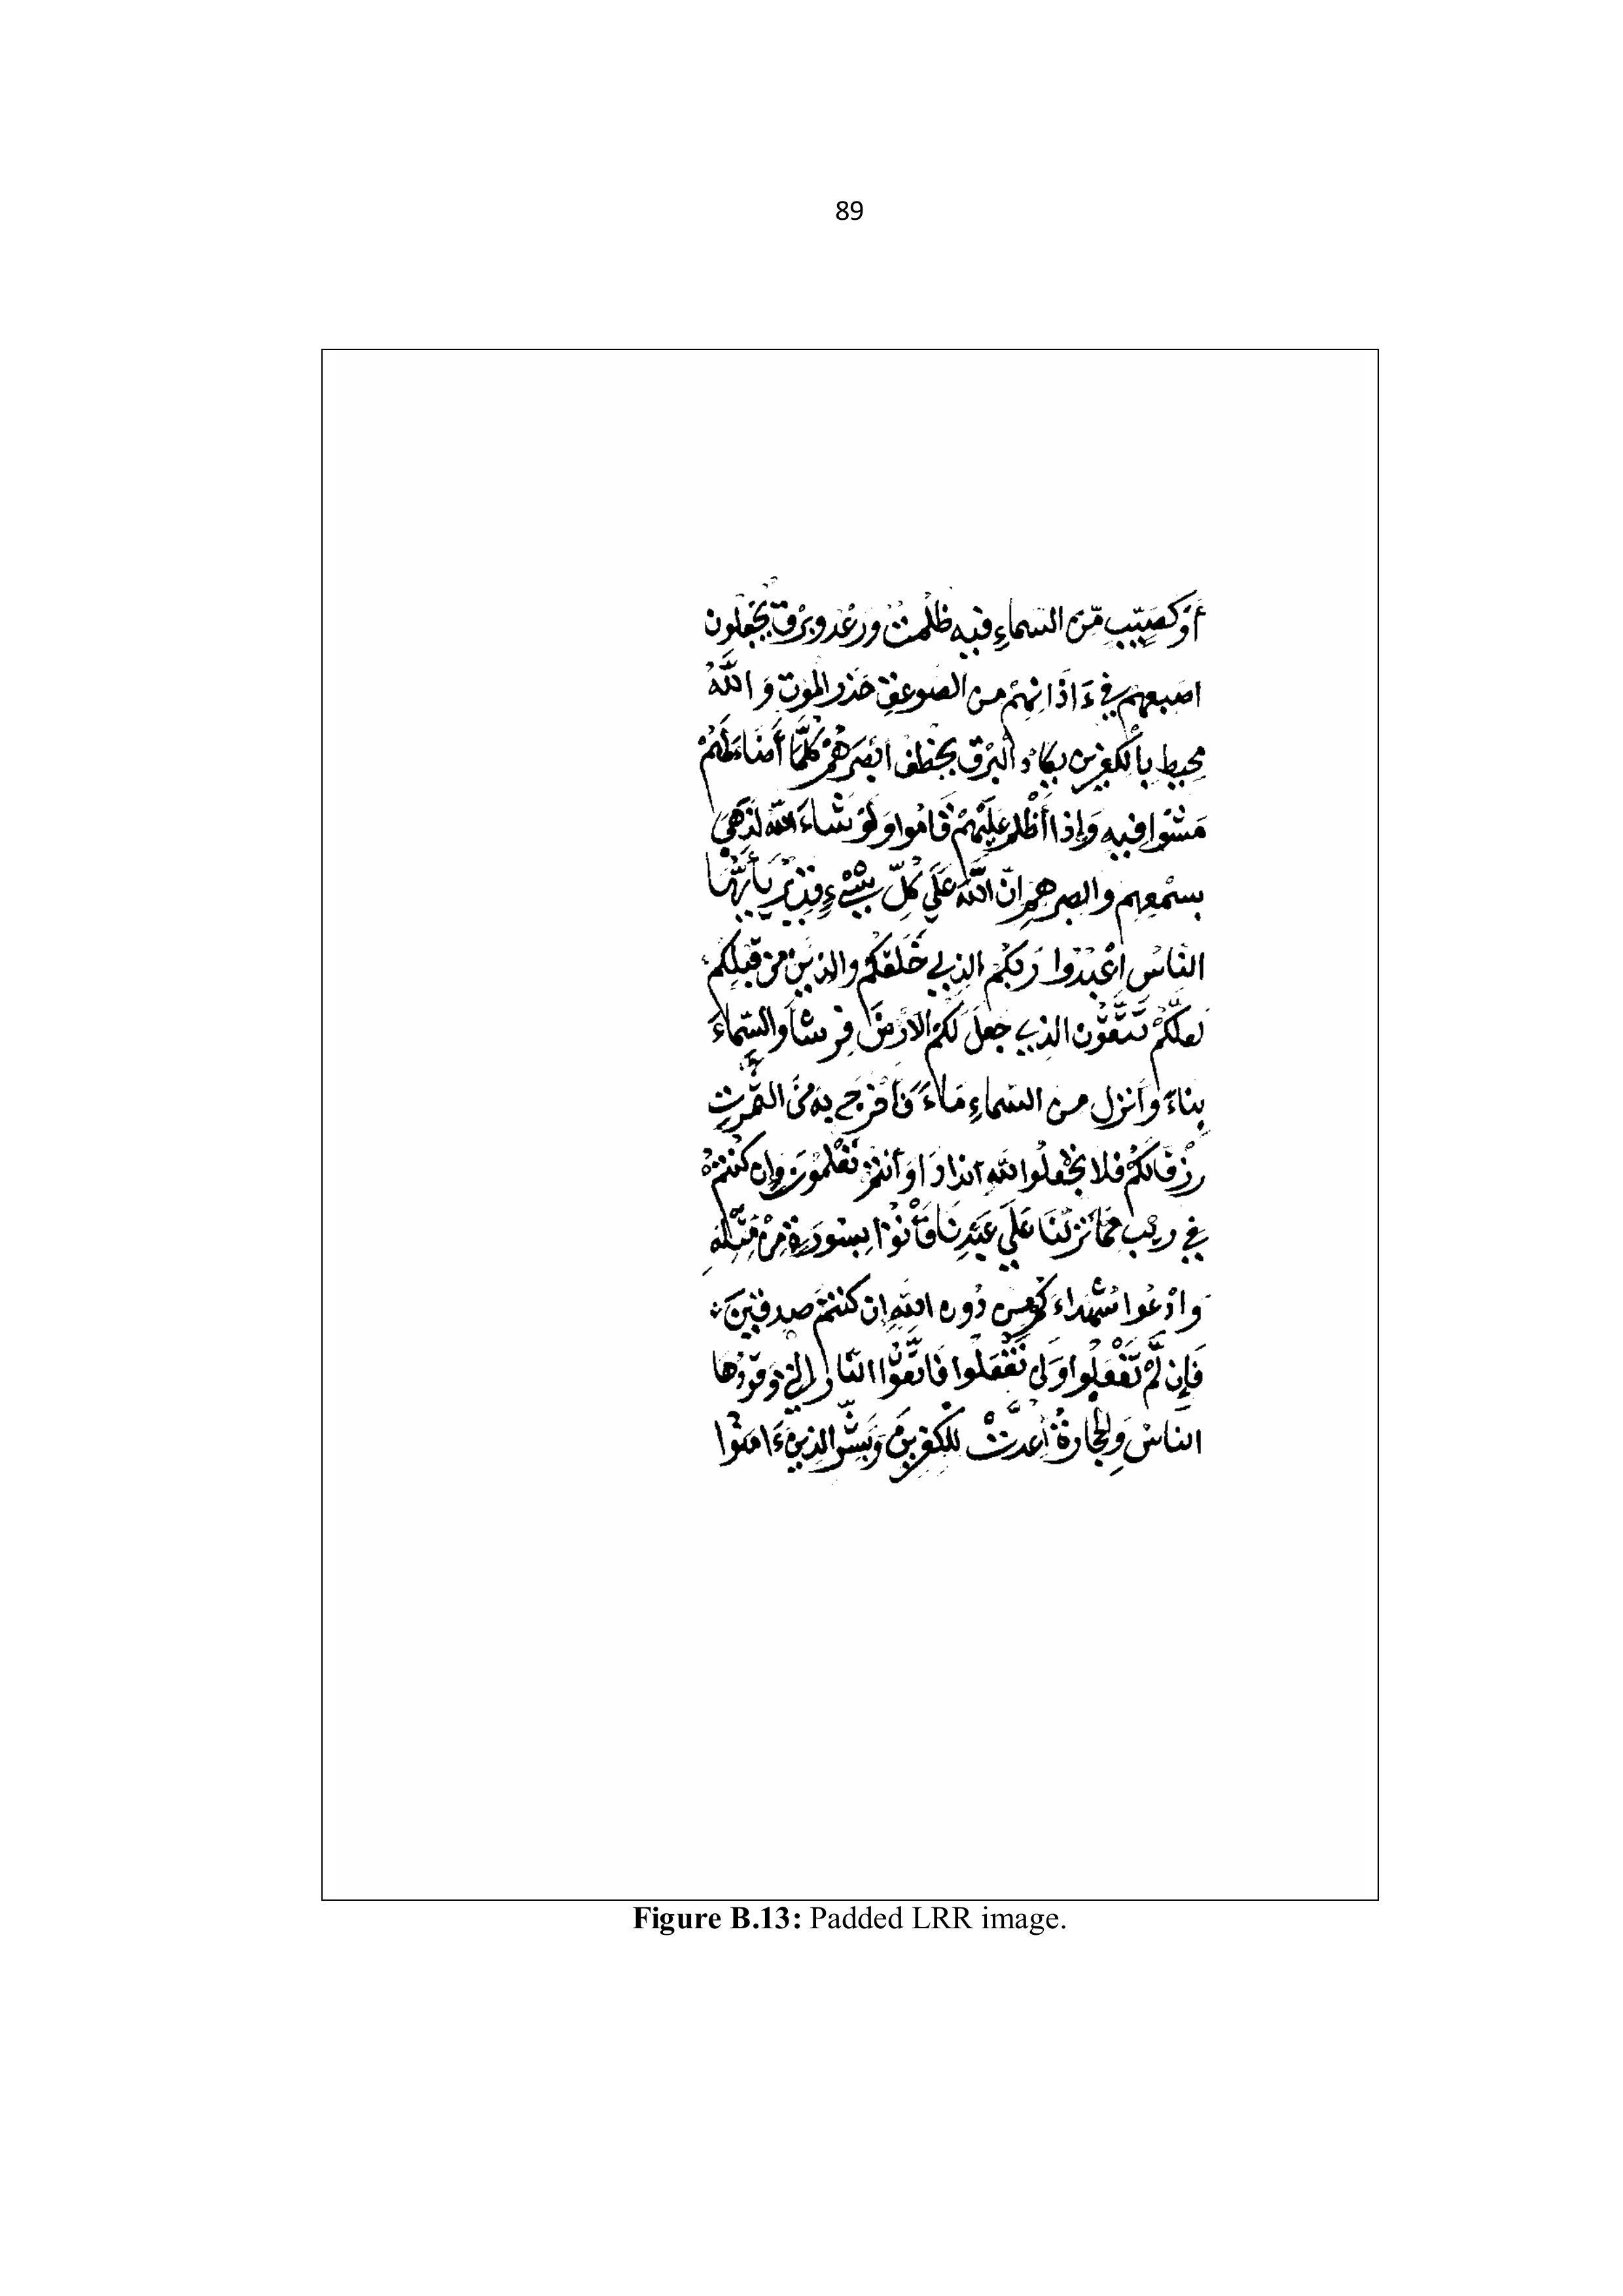 89
أَوْ كَصَيِّبٍ مِّنَ السَّمَاءِ فيه ظُلُمت ورعْد وبرْق يَجْعلون
اصبعهم في ءَاذانهِمْ من الصوعق حَذر الموْت وَاللَّهُ
محيط بالكفرين يكاد البرْق يخطف أبْصرَهُمْ كُلَّمَا أَضَاءَ لَهُمْ
مَشَوْا فيه وَإذا أَظْلم عَلَيْهِمْ قَامُوا وَلَوْ شَاءَ اللَّه لَذَهَبَ
بسمْعِهِم وابصرهم إنّ اللَّهَ عَلَى كُلِّ شَيْءٍ قدِيرٌ يَأَيُّهَا
النَّاسُ اعْبُدُوا رَبَّكُمْ الذي خَلَقَكُمْ والذين مِن قَبْلِكُمْ
لعلَّكُمْ تَتَّقُون الذي جعَلَ لَكُمْ الأَرْضَ فِرشًا والسَّمَاءَ
بِناءً وأَنزل من السَّمَاءِ مَاءً فَأَخْرَجَ به مِنَ الثَّمَرتِ
رِزْقًا لَكُمْ فلا تَجْعَلُوا لِلَّهِ اندَادًا وَأَنتمْ تَعْلَمُونَ وَإِن كُنتُمْ
في ريْب مِّمَّا نَزَّلْنَا عَلَى عَبْدِنَا فَأْتُوا بِسُورَةٍ مِّنْ مِّثْلِهِ
وادْعُوا شُهَدَاءَكُمْ من دُون اللَّهِ إن كنتمْ صدقينَ
فَإِن لَّمْ تَفْعَلُوا وَلَن تَفْعَلُوا فَاتَّقُوا النَّارَ التي وَقُودُهَا
الناسُ وَالْحِجَارَةُ أُعِدَّتْ لِلْكفرينَ وَبَشِّرِ الذِينَ ءَامَنُوا
Figure B.13: Padded LRR image.